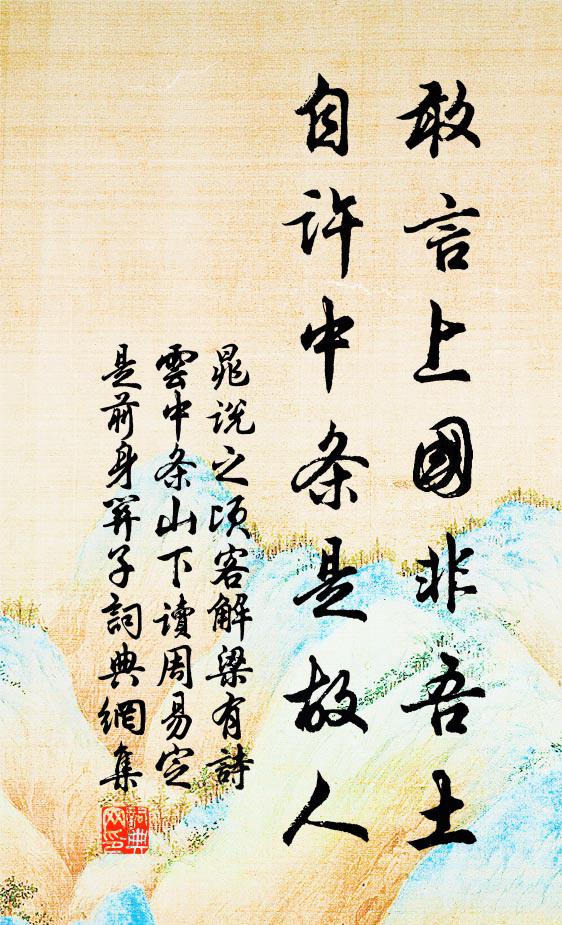 敢言上國非吾土
自许中条是故人
晁说之顷客解梁有詩
雲中条山下讀周易定
是前身関子詞典網集
詞典網印